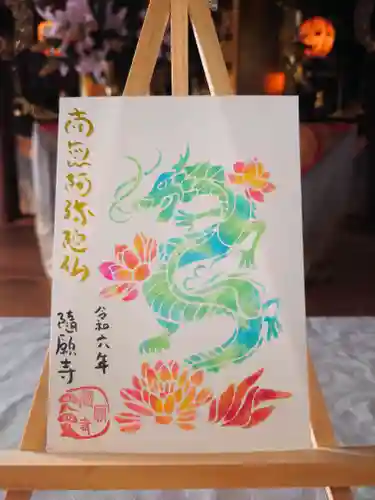 南無阿弥陀仏
令和六年
隨願寺